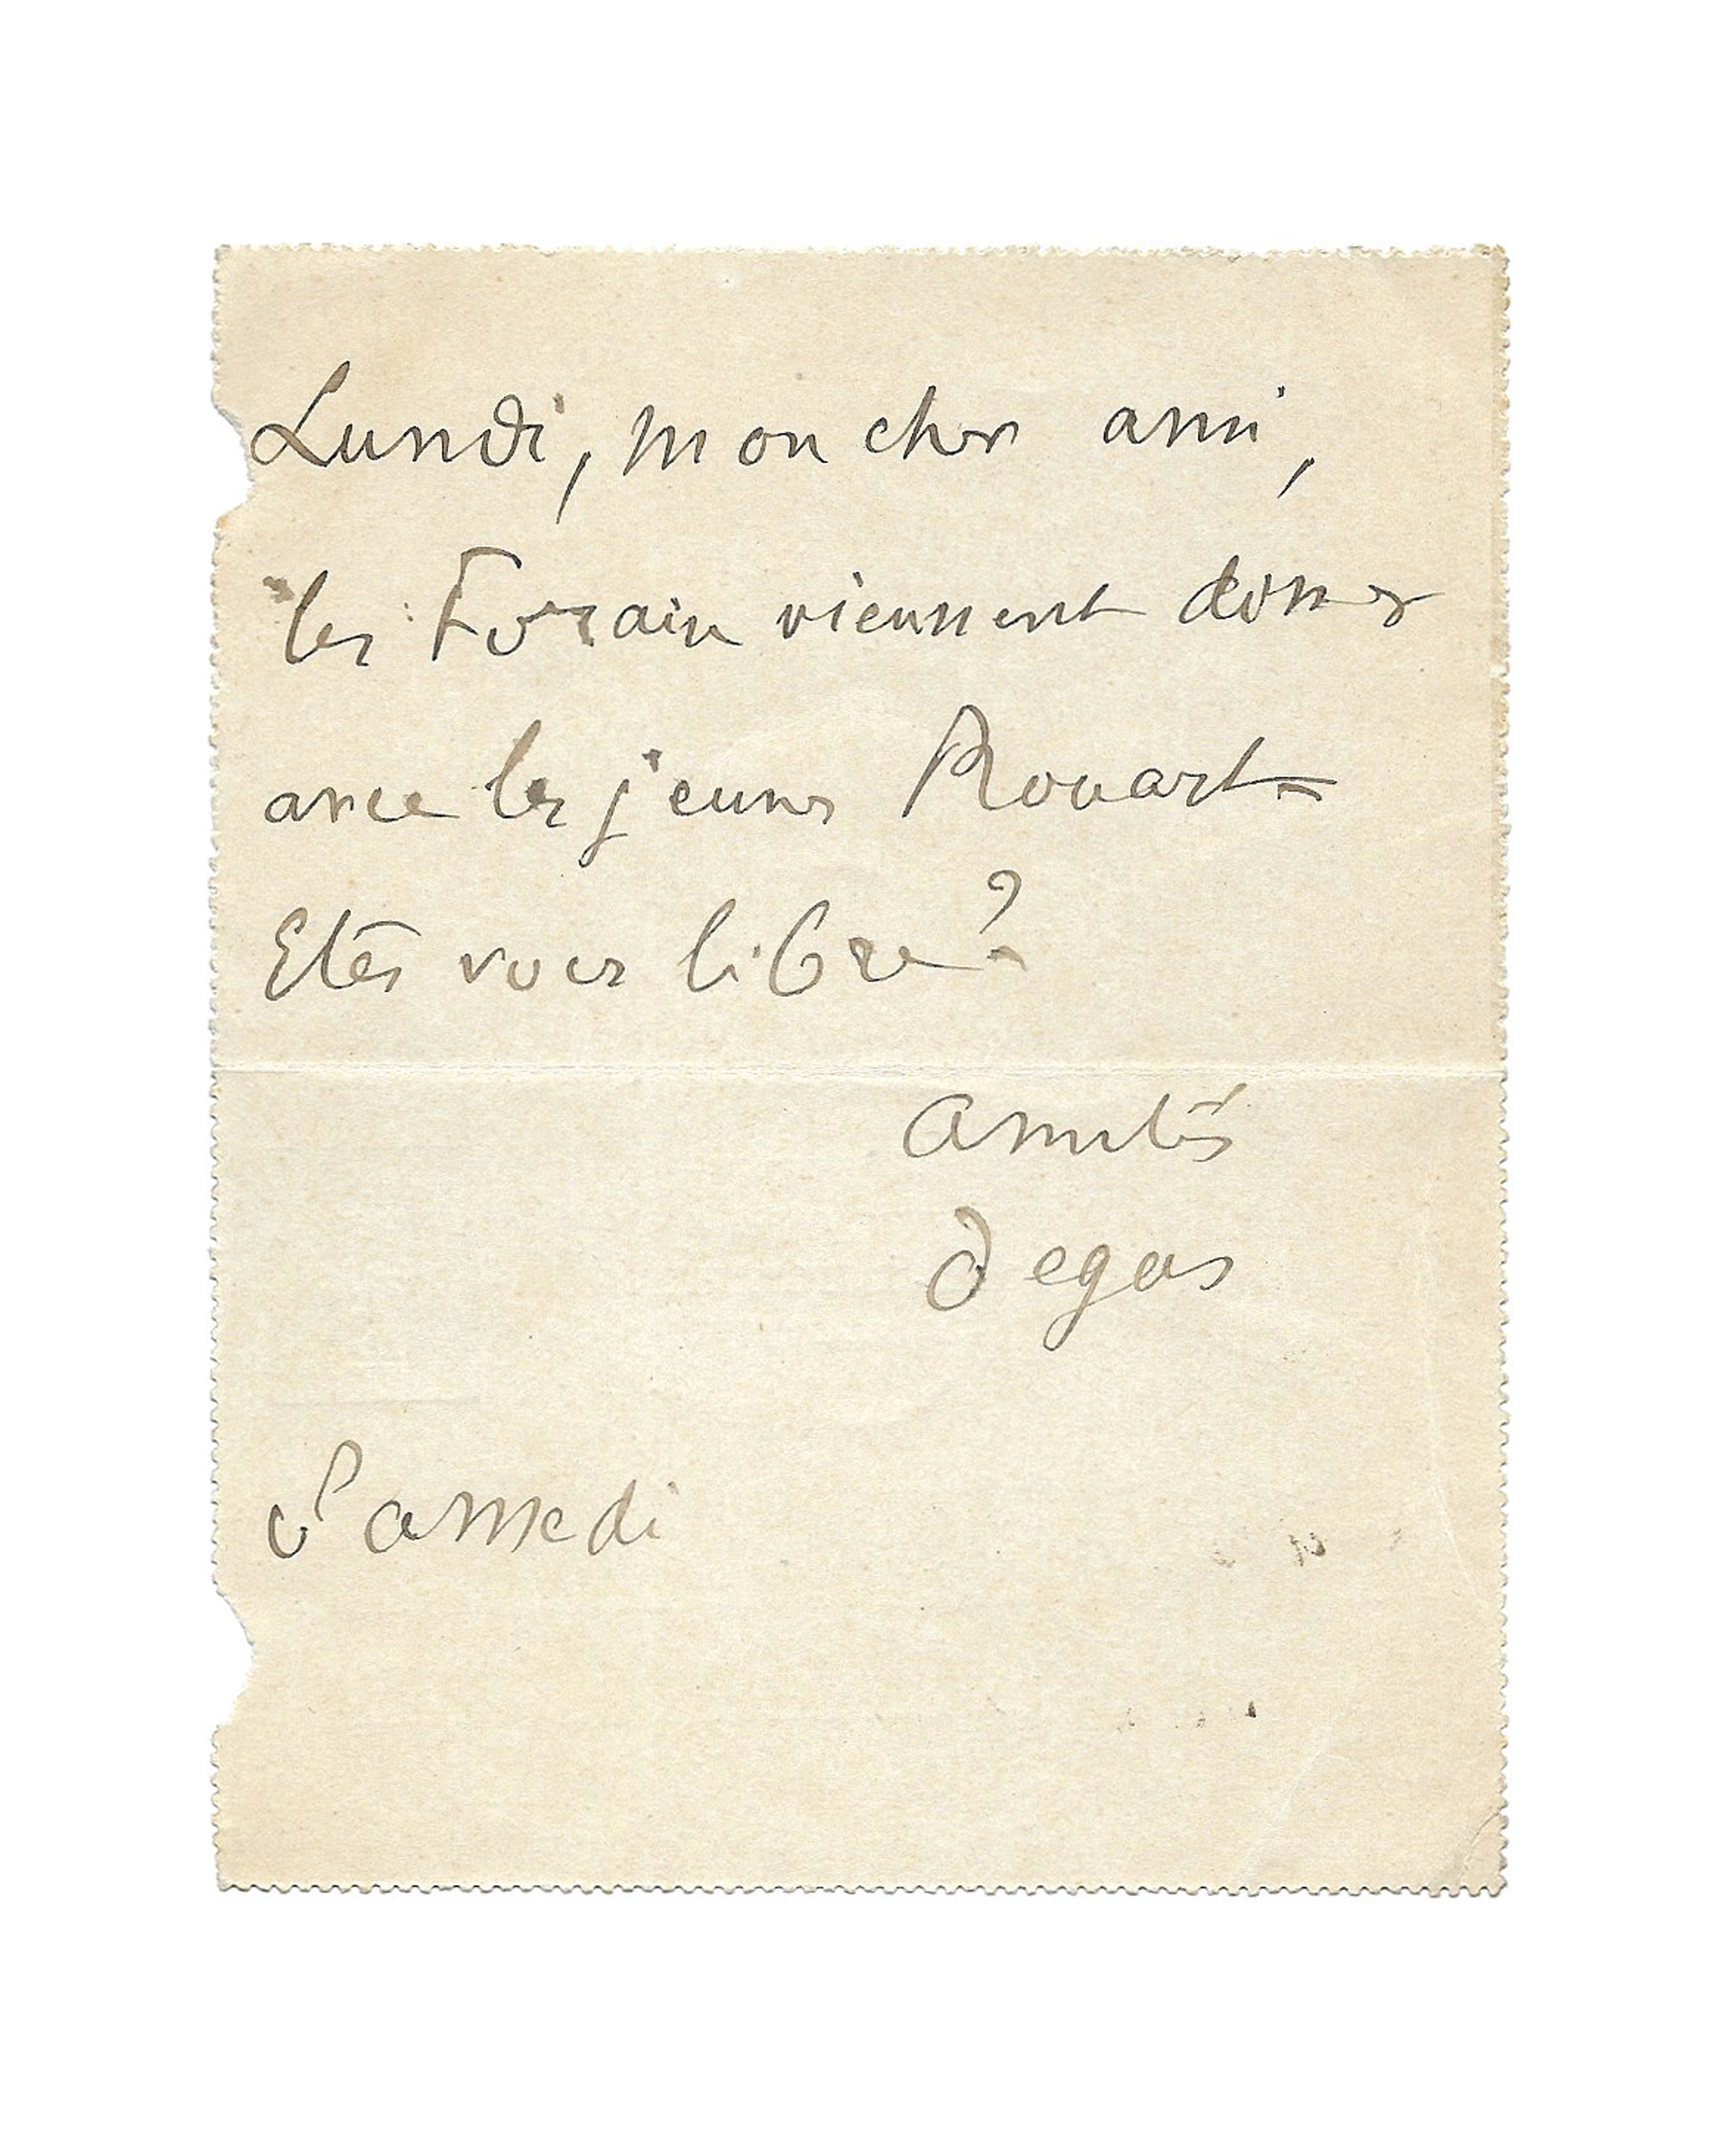 Lundi, mon cher ami,
les Forain viennent diner
avec les jeunes Rouart –
Etes vous libre?
Amitiés
Degas
Samedi